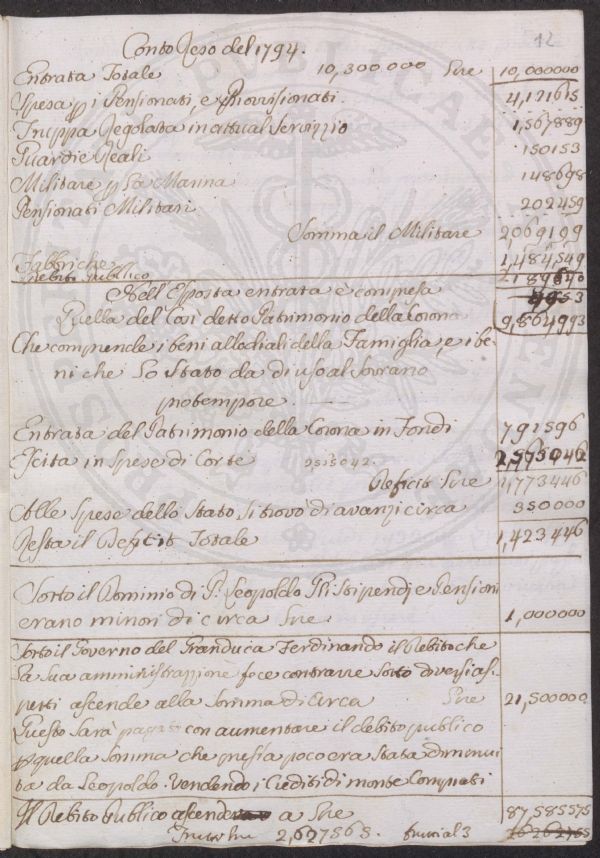 12
Conto Reso del 1794.
Entrata Totale 10,300000 Lire 10,000000
Spesa p i Pensionati, e Provisionati. 4,121615
Truppa Regolata in attual Servizzio 1,567889
Guardie Reali 150153
Militare p La Marina 148698
Pensionati Militari 202459
Somma il Militare 2,069199
Fabbriche 1,484549
Debito Pubblico 2189640
Nell'Esposta entrata è compresa
Quella del Così detto Patrimonio della Corona 9,864993
Che comprende i beni allodiali della Famiglia, e i be-
ni che Lo Stato da di uso al Sovrano
protempore.
Entrata del Patrimonio della Corona in Fondi 791596
Escita in Spese di Corte 2515042. 2,573046
Deficit Lire 1,773446
Alle Spese dello Stato si trovò di avanzi circa 350000
Resta il Defitit Totale 1,423446
Sotto il Dominio di P. Leopoldo Gli Stipendj e Pensioni
erano minori di circa Lire 1,000000
Sotto il Governo del Granduca Ferdinando il Debito che
La Sua amministrazzione fece contrarre Sotto diversi as-
petti ascende alla Somma di Circa Lire 21,500000
Questo Sarà pagato con aumentare il debito pubblico
p quella Somma che presía poco era Stata diminui
ta da Leopoldo. Vendendo i Crediti di monte Comprati
Il Debito Pubblico ascende a Lire 87,585575
Frutto Lire 2,627568. frutti al 3